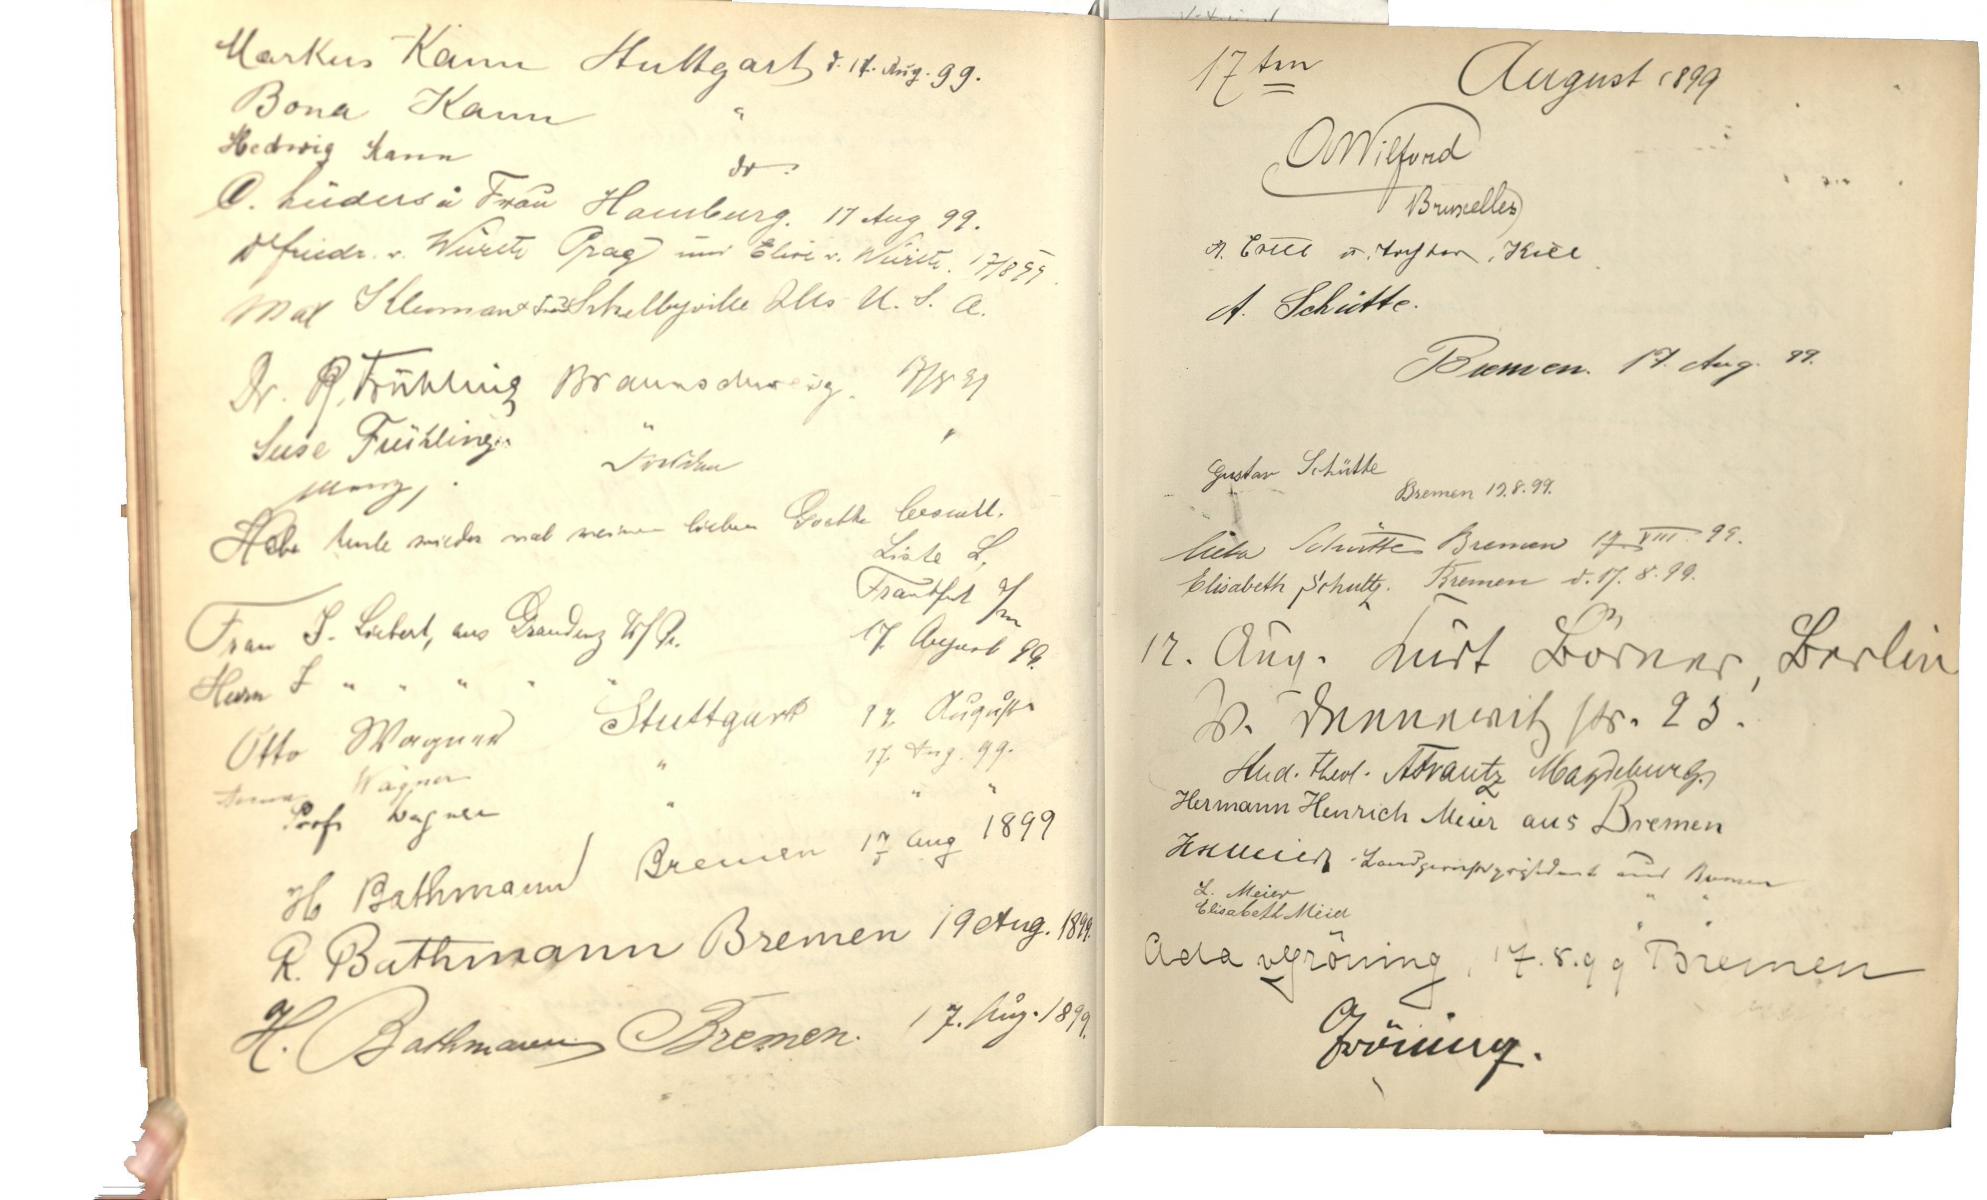 Markus Kann Stuttgart d. 17. Aug. 99.
Bona Kann "
Hedwig Kann do.
C. Lüders u Frau Hamburg. 17 Aug 99.
Dr Friedr. v. Würth Prag und Elise v. Würth. 17/8 99.
Max Kleeman & Frau Schelbyville Ills U. S. A.
Dr. R. Frühling Braunschweig. 17/8 99
Suse Frühling. " "
Habe heute wieder mal meinen lieben Goethe besucht.
Liste L.
Frankfurt a/m
17 August 99.
Frau S. Liebert, aus Graudenz W/Pr.
Herrn S " " " " "
Otto Wagner Stuttgart 17. August
Wagner " 17. Aug. 99.
Prof. Wagner " " "
H Bathmann Bremen 17 Aug 1899
R. Bathmann Bremen 19 Aug. 1899.
H. Bathmann Bremen. 17. Aug. 1899.
17ten August 1899
A Wilford
Bruxelles
A. Ertel u. Tochter, Kiel.
A. Schütte.
Bremen. 17. Aug. 99.
Gustav Schütte
Bremen 17.8.99.
Schütte Bremen 17 VIII. 99.
Elisabeth Schultz. Bremen d. 17. 8. 99.
17. Aug. Kurt Börner, Berlin
W. Dennewitz str. 23.
stud. theol. A Frantz Magdeburg.
Hermann Henrich Meier aus Bremen
HH Meier Landgerichtspräsident aus Bremen
L. Meier " "
Elisabeth Meier " "
Ada v Gröning, 17.8.99 Bremen
Gröning.